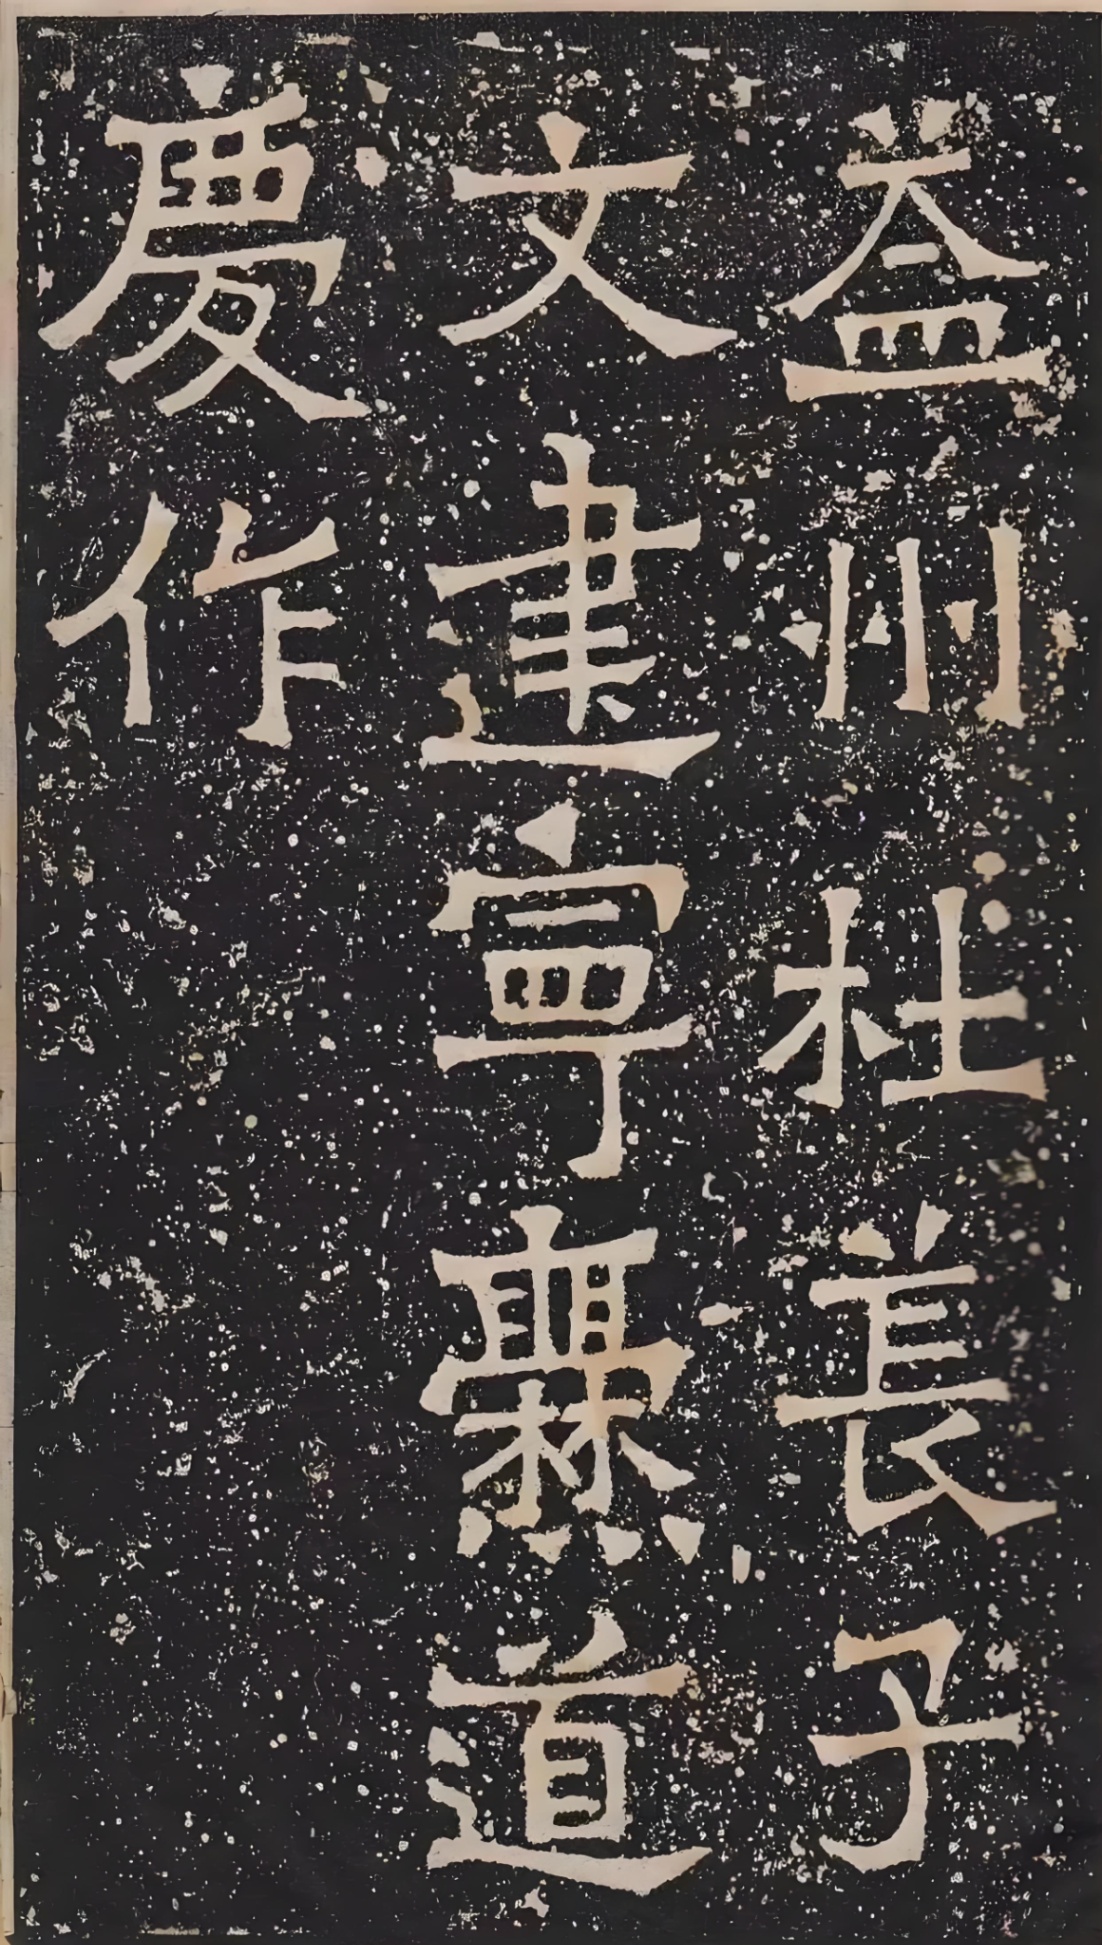 益州杜萇子
文建寧爨道
慶作